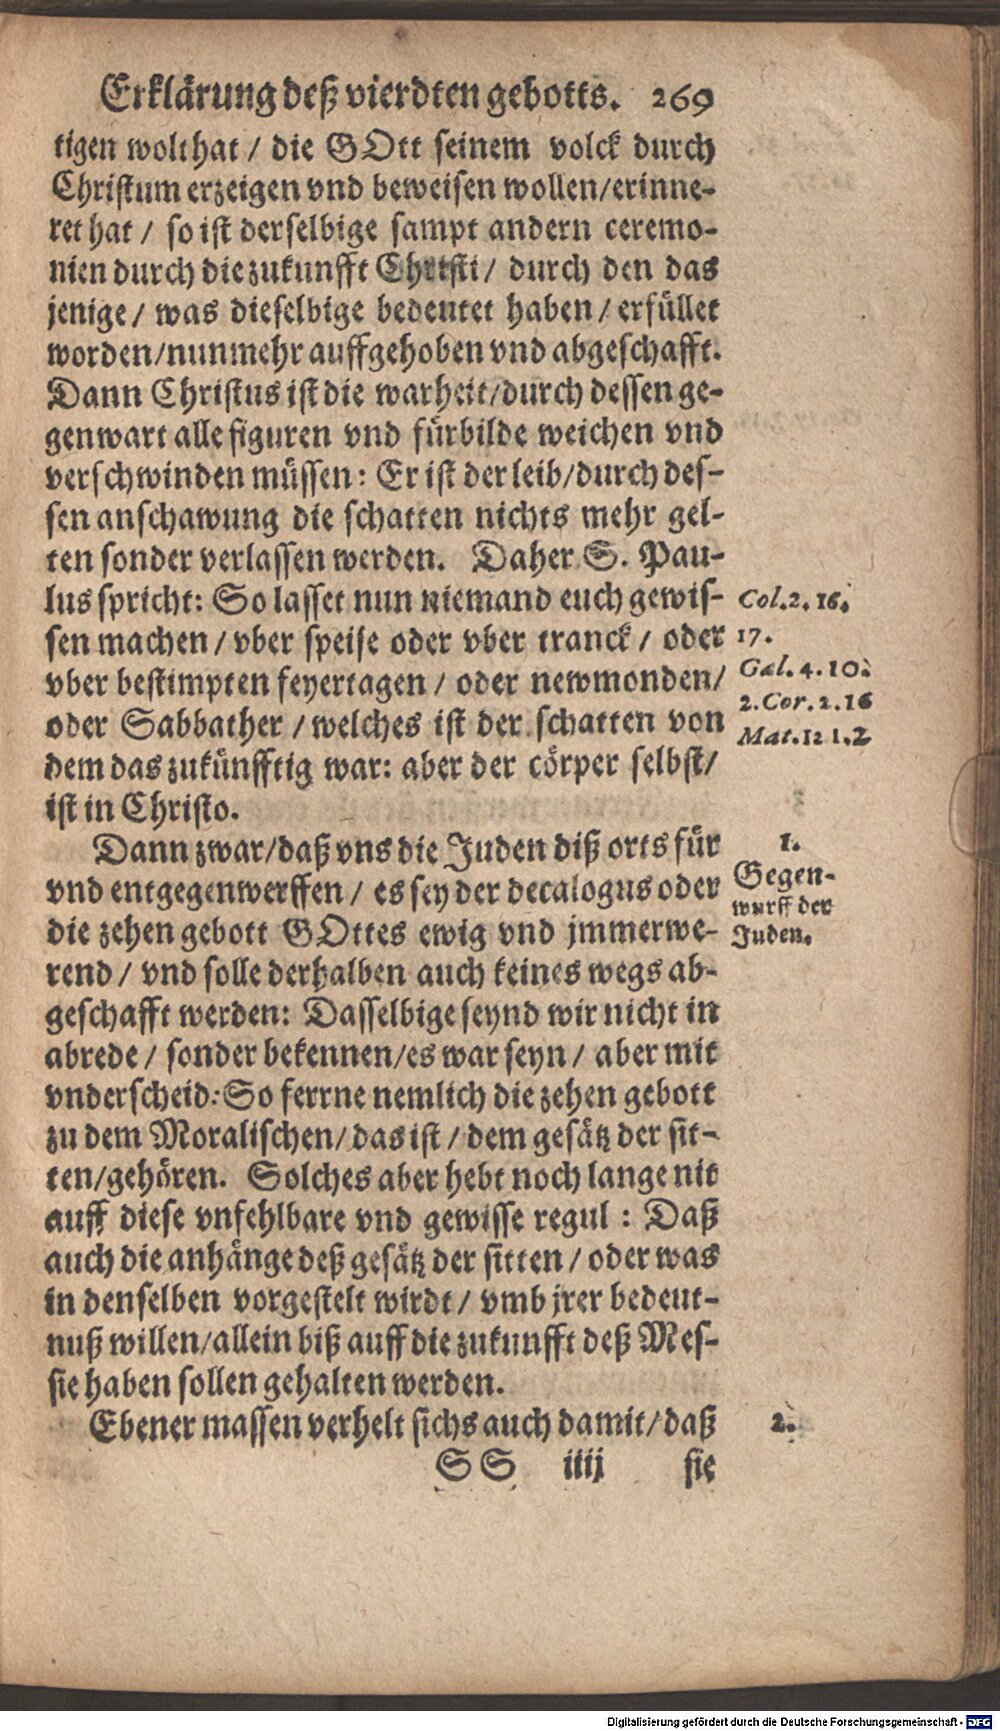 Erklärung deß vierdten gebotts. 269
tigen wolthat / die GOtt seinem volck durch
Christum erzeigen vnd beweisen wollen/erinne-
ret hat / so ist derselbige sampt andern ceremo-
nien durch die zukunfft Christi / durch den das
jenige / was dieselbige bedeutet haben / erfüllet
worden/nunmehr auffgehoben vnd abgeschafft.
Dann Christus ist die warheit/durch dessen ge-
genwart alle figuren vnd fürbilde weichen vnd
verschwinden müssen: Er ist der leib/durch des-
sen anschawung die schatten nichts mehr gel-
ten sonder verlassen werden. Daher S. Pau-
lus spricht: So lasset nun niemand euch gewis-
sen machen / vber speise oder vber tranck / oder
vber bestimpten feyertagen / oder newmonden/
oder Sabbather / welches ist der schatten von
dem das zukünfftig war: aber der cörper selbst/
ist in Christo.
Col.2.16.
17.
Gal.4.10.
2.Cor.2.16
Mat.12 1.2
Dann zwar/daß vns die Juden diß orts für
vnd entgegenwerffen / es sey der decalogus oder
die zehen gebott GOttes ewig vnd jmmerwe-
rend / vnd solle derhalben auch keines wegs ab-
geschafft werden: Dasselbige seynd wir nicht in
abrede / sonder bekennen/es war seyn / aber mit
vnderscheid: So ferrne nemlich die zehen gebott
zu dem Moralischen/das ist / dem gesätz der sit-
ten/gehören. Solches aber hebt noch lange nit
auff diese vnfehlbare vnd gewisse regul : Daß
auch die anhänge deß gesätz der sitten / oder was
in denselben vorgestelt wirdt / vmb jrer bedeut-
nuß willen/allein biß auff die zukunfft deß Mes-
sie haben sollen gehalten werden.
1.
Gegen-
wurff der
Juden.
Ebener massen verhelt sichs auch damit/daß
2.
SS iiij sie
Digitalisierung gefördert durch die Deutsche Forschungsgemeinschaft - DFG